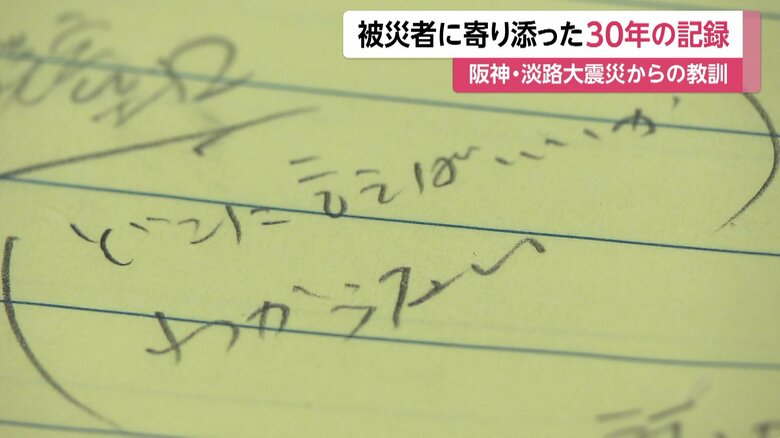 被災者に寄り添った30年の記録
阪神・淡路大震災からの教訓
どこに言えばいいか
わからない